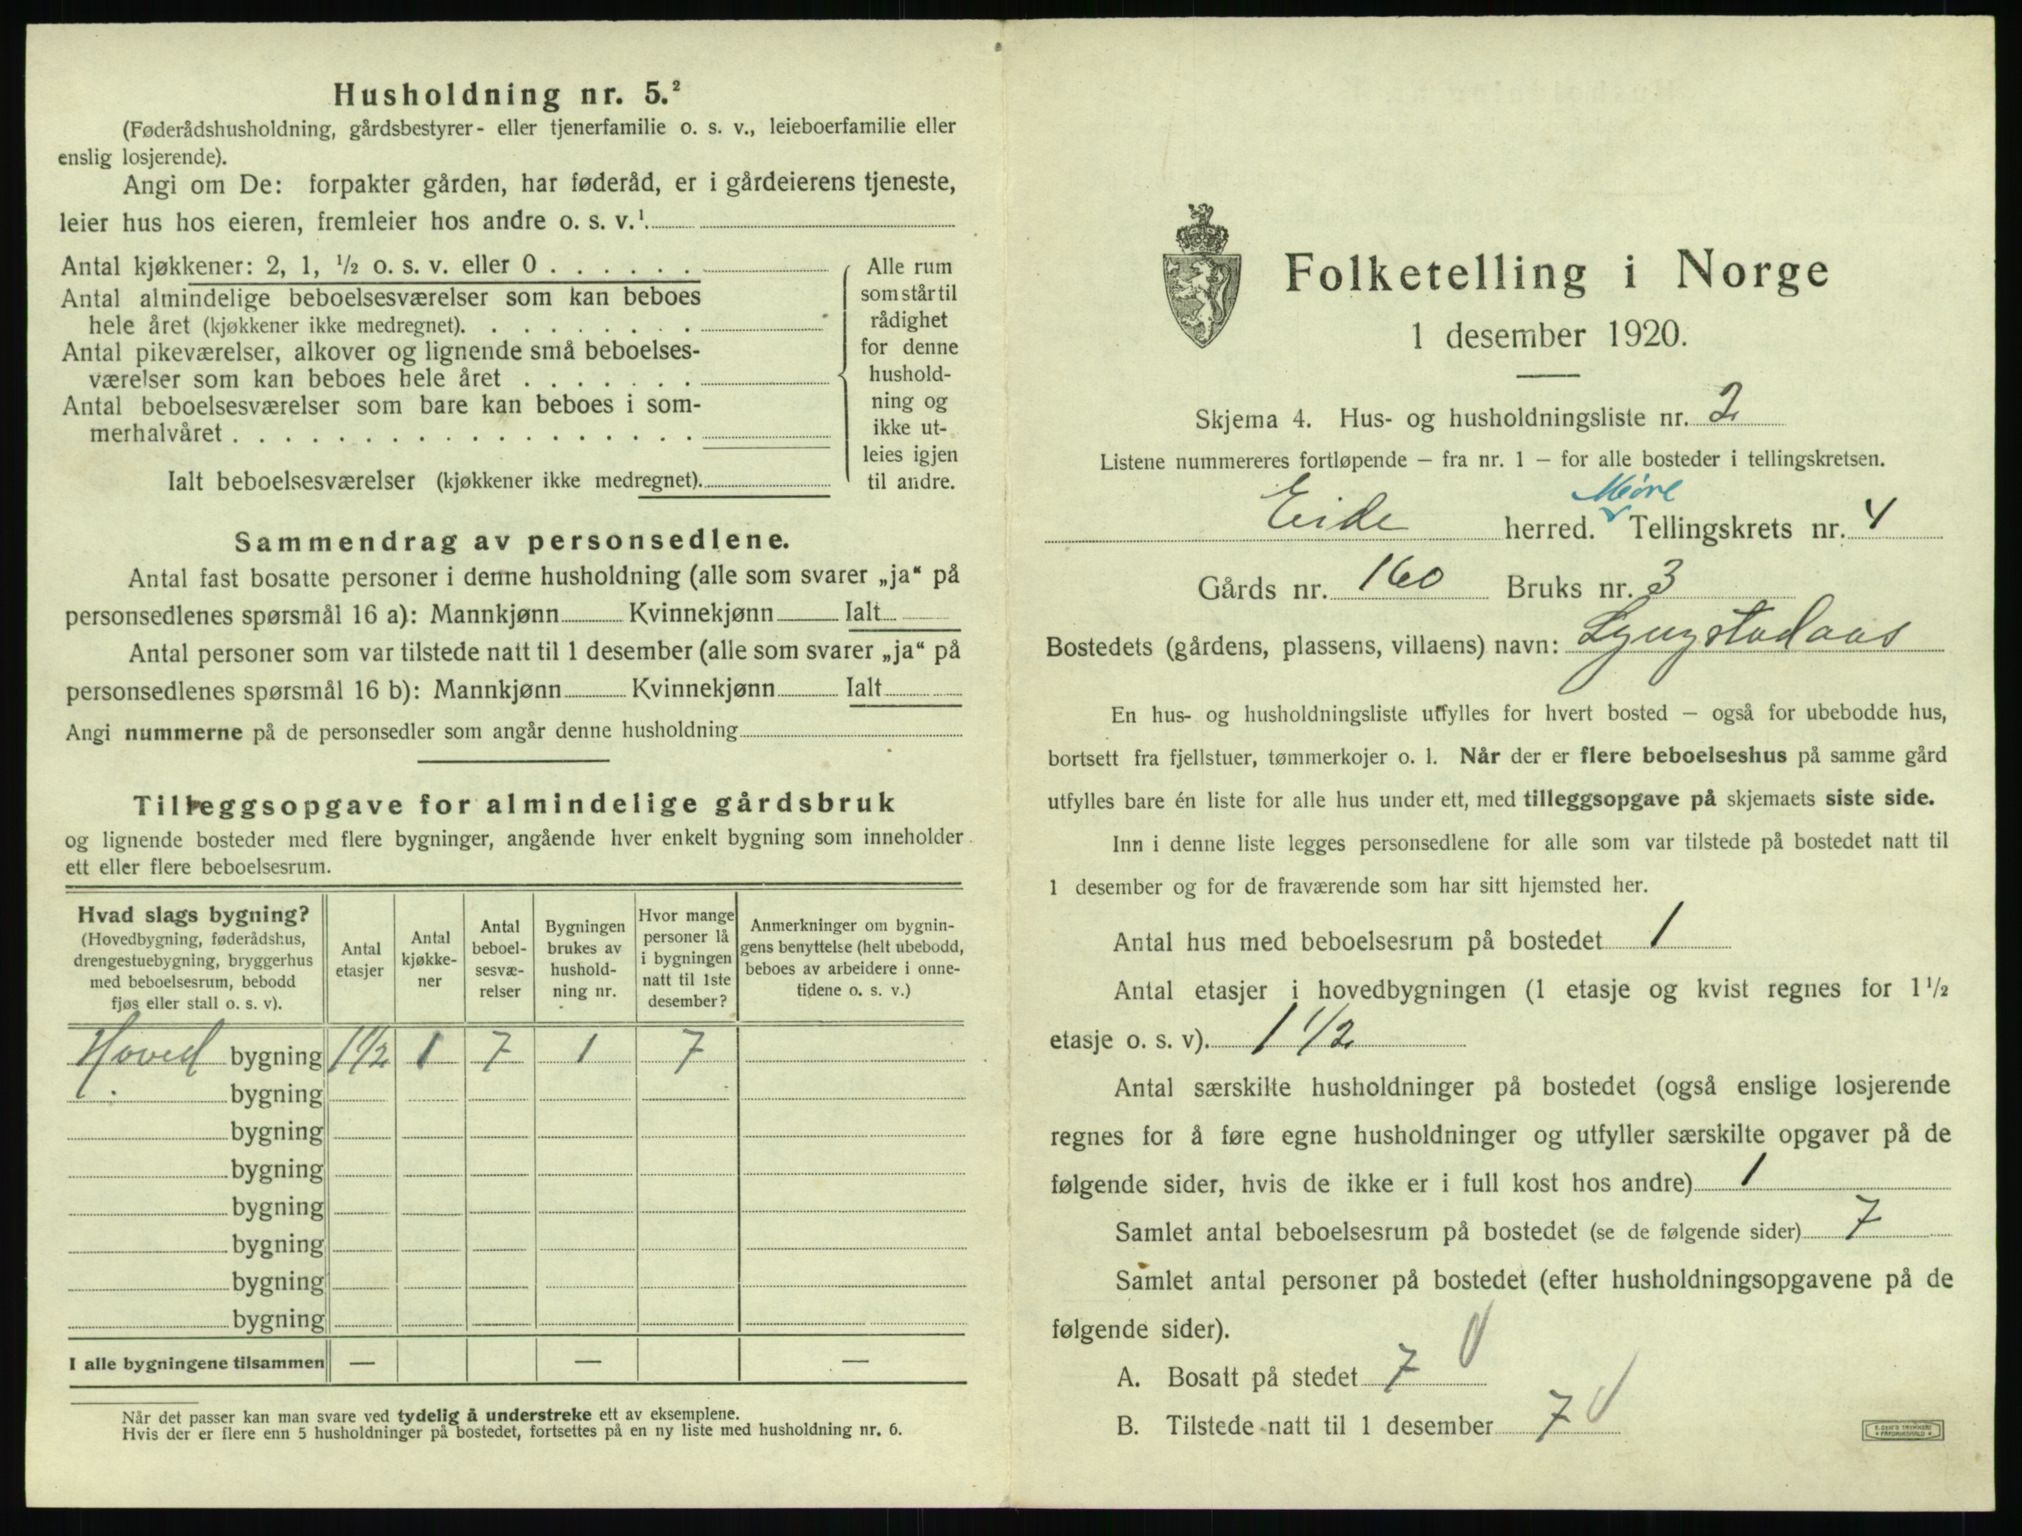 Husholdning nr. 5.²
(Føderådshusholdning, gårdsbestyrer- eller tjenerfamilie o. s. v., leieboerfamilie eller
enslig losjerende).
Angi om De: forpakter gården, har føderåd, er i gårdeierens tjeneste,
leier hus hos eieren, fremleier hos andre o. s. v.¹
Antal kjøkkener: 2, 1, ½ o. s. v. eller 0
Antal almindelige beboelsesværelser som kan beboes
hele året (kjøkkener ikke medregnet).
Antal pikeværelser, alkover og lignende små beboelses-
værelser som kan beboes hele året
Antal beboelsesværelser som bare kan beboes i som-
merhalvåret
Ialt beboelsesværelser (kjøkkener ikke medregnet).
Alle rum
som står til
rådighet
for denne
hushold-
ning og
ikke ut-
leies igjen
til andre.
Sammendrag av personsedlene.
Antal fast bosatte personer i denne husholdning (alle som svarer „ja“ på
personsedlenes spørsmål 16 a): Mannkjønn Kvinnekjønn Ialt
Antal personer som var tilstede natt til 1 desember (alle som svarer „ja“ på
personsedlenes spørsmål 16 b): Mannkjønn Kvinnekjønn Ialt
Angi nummerne på de personsedler som angår denne husholdning
Tilleggsopgave for almindelige gårdsbruk
og lignende bosteder med flere bygninger, angående hver enkelt bygning som inneholder
ett eller flere beboelsesrum.
Hvad slags bygning?
(Hovedbygning, føderådshus,
drengestuebygning, bryggerhus
med beboelsesrum, bebodd
fjøs eller stall o. s. v).
Antal
etasjer
Antal
kjøkke-
ner
Antal
beboel-
sesvæ-
relser
Bygningen
brukes av
hushold-
ning nr.
Hvor mange
personer lå
i bygningen
natt til 1ste
desember?
Anmerkninger om bygnin-
gens benyttelse (helt ubebodd,
beboes av arbeidere i onne-
tidene o. s. v.)
Hoved bygning 1½ 1 7 1 7
bygning
bygning
bygning
bygning
bygning
bygning
bygning
I alle bygningene tilsammen — — —
Når det passer kan man svare ved tydelig å understreke ett av eksemplene.
Hvis der er flere enn 5 husholdninger på bostedet, fortsettes på en ny liste med husholdning nr. 6.
Folketelling i Norge
1 desember 1920.
Skjema 4. Hus- og husholdningsliste nr. 2
Listene nummereres fortløpende – fra nr. 1 – for alle bosteder i tellingskretsen.
Møre
Eide herred. Tellingskrets nr. 4
Gårds nr. 160 Bruks nr. 3
Bostedets (gårdens, plassens, villaens) navn: Lyngstadaas
En hus- og husholdningsliste utfylles for hvert bosted – også for ubebodde hus,
bortsett fra fjellstuer, tømmerkojer o. l. Når der er flere beboelseshus på samme gård
utfylles bare én liste for alle hus under ett, med tilleggsopgave på skjemaets siste side.
Inn i denne liste legges personsedlene for alle som var tilstede på bostedet natt til
1 desember og for de fraværende som har sitt hjemsted her.
Antal hus med beboelsesrum på bostedet 1
Antal etasjer i hovedbygningen (1 etasje og kvist regnes for 1½
etasje o. s. v). 1½
Antal særskilte husholdninger på bostedet (også enslige losjerende
regnes for å føre egne husholdninger og utfyller særskilte opgaver på de
følgende sider, hvis de ikke er i full kost hos andre) 1
Samlet antal beboelsesrum på bostedet (se de følgende sider) 7
Samlet antal personer på bostedet (efter husholdningsopgavene på de
følgende sider).
A. Bosatt på stedet 7
B. Tilstede natt til 1 desember 7